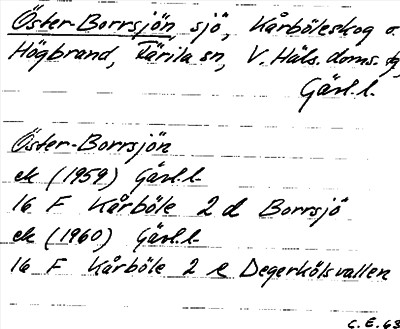 Öster-Borrsjön, sjö, Kårböleskog o.
Högbrand, Färila sn, V. Häls. doms. dg,
Gävl. l.
Öster-Borrsjön
ek (1959) Gävl. l.
16 F Kårböle 2 d Borrsjö
ek (1960) Gävl. l.
16 F Kårböle 2 e Degerkölsvallen
C. E. 63